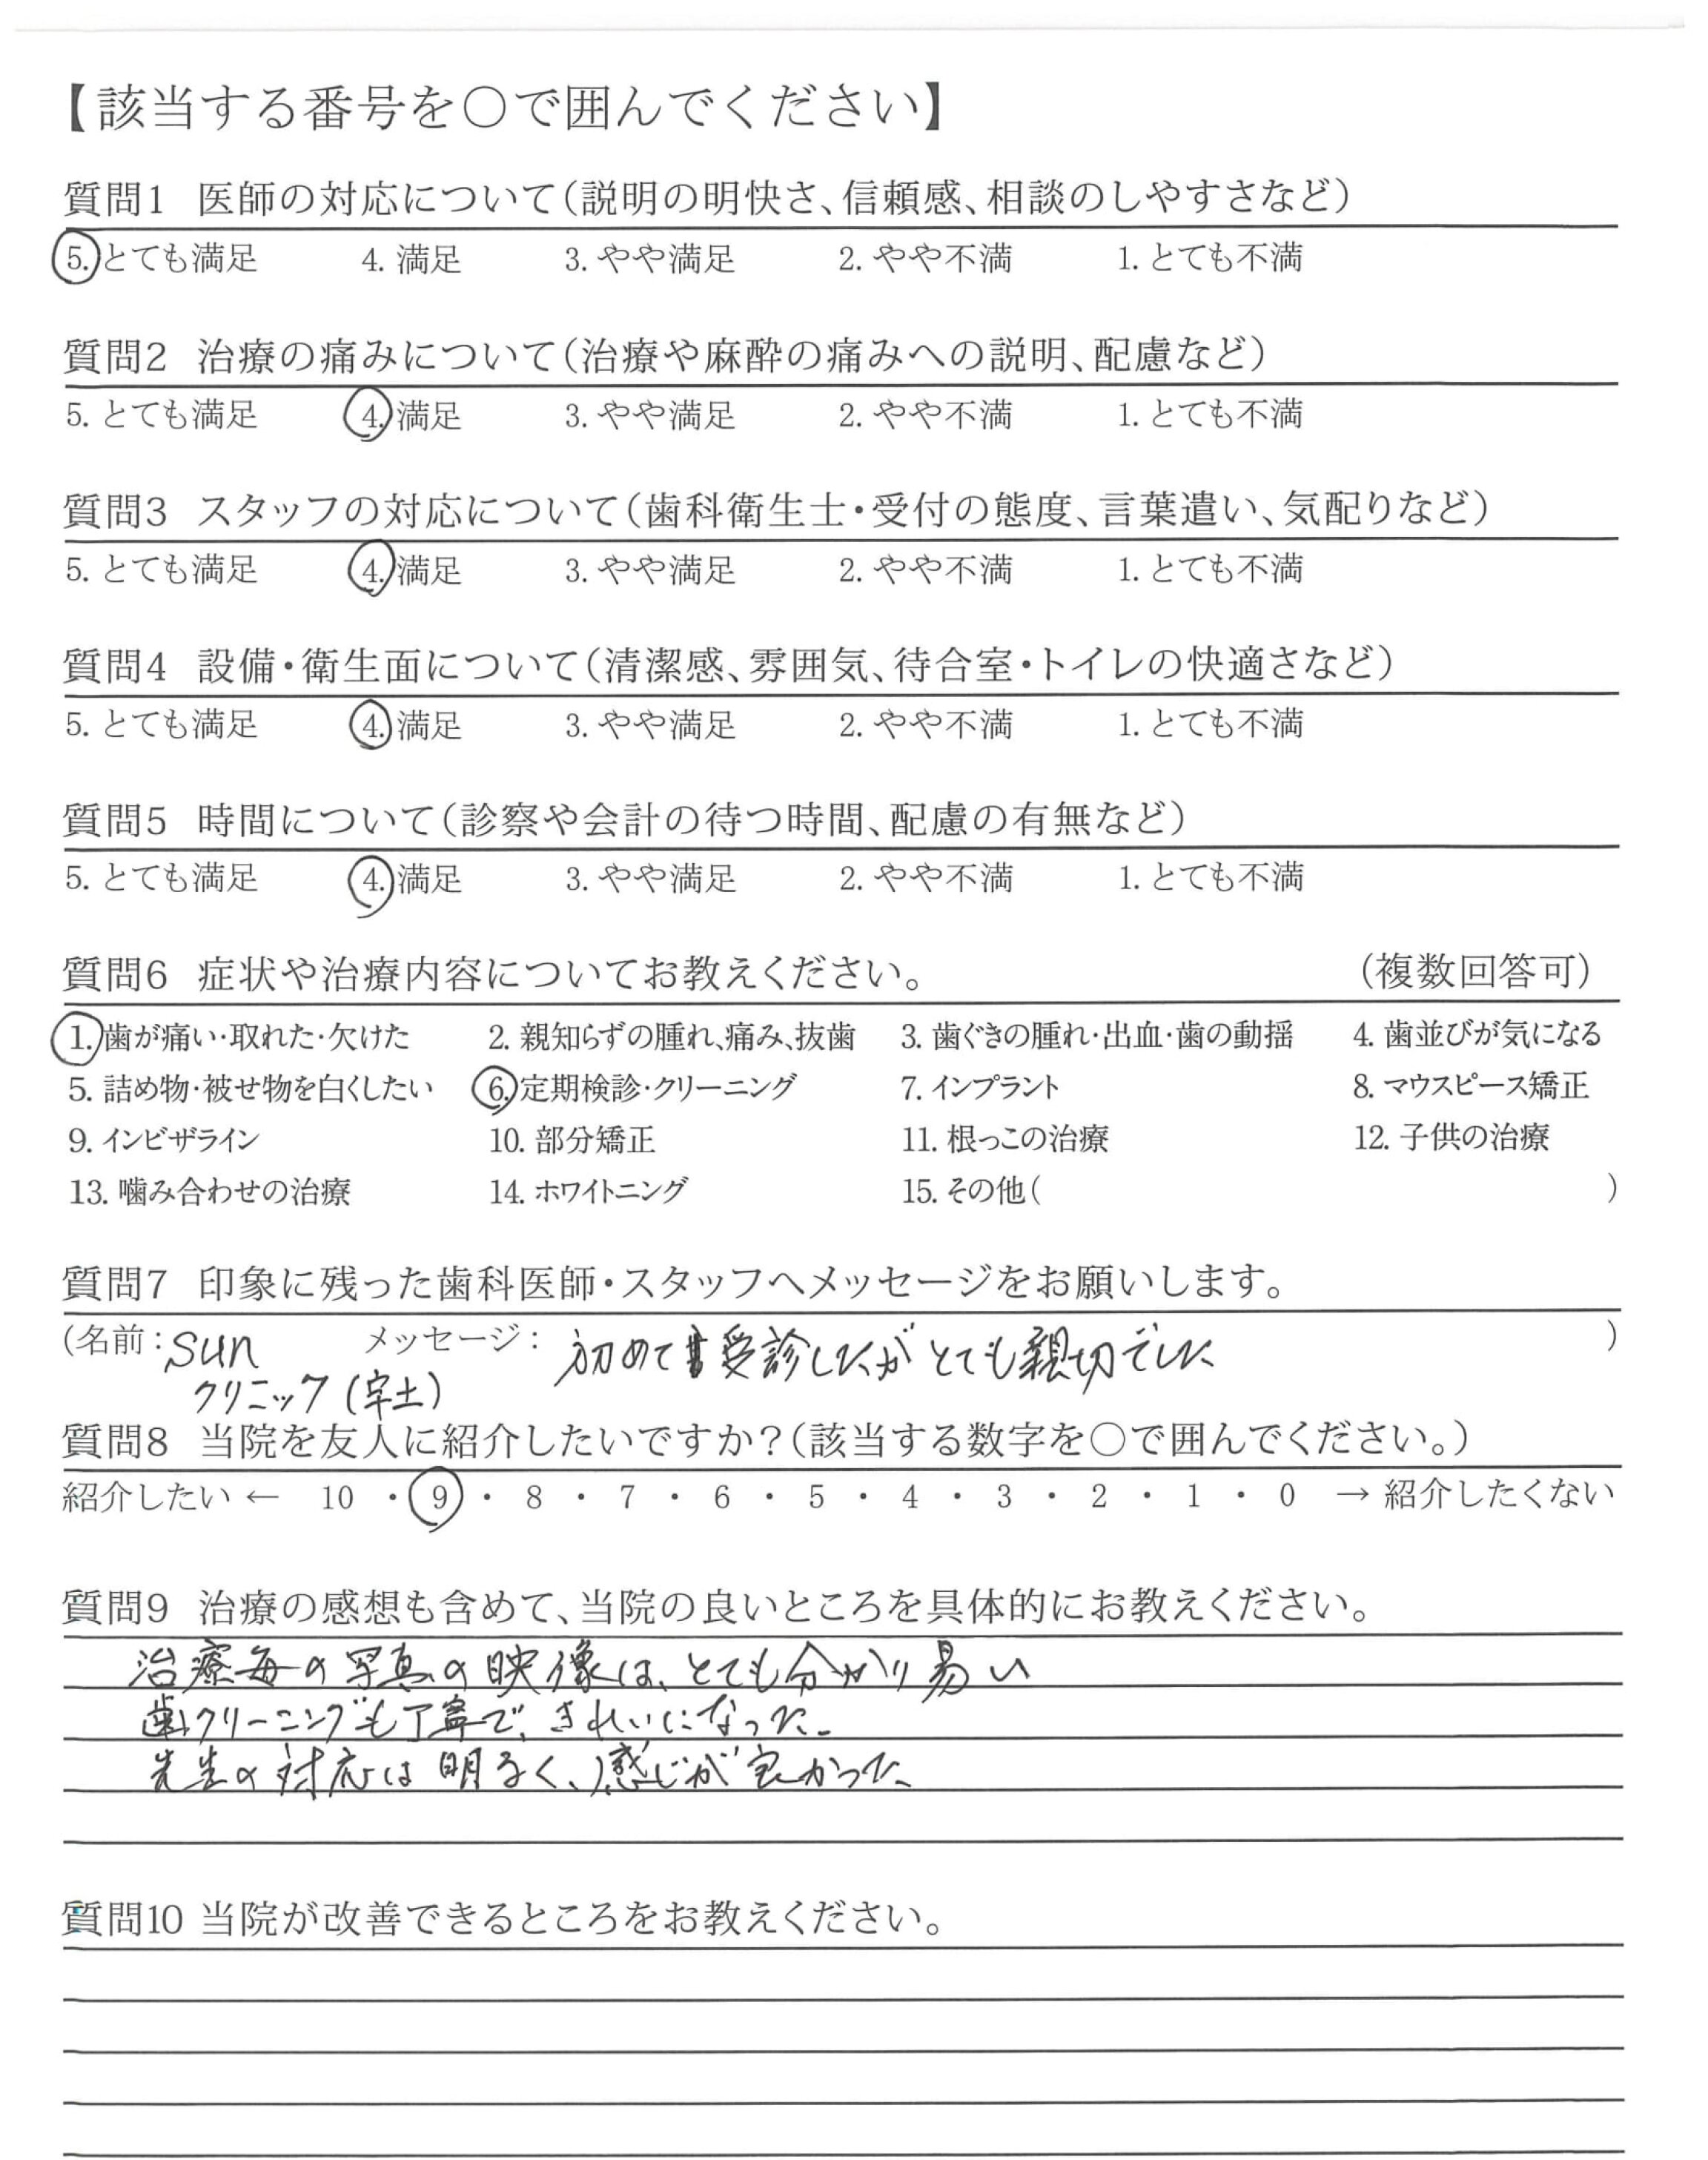 【該当する番号を○で囲んでください】
質問1 医師の対応について（説明の明快さ、信頼感、相談のしやすさなど）
5. とても満足 4. 満足 3. やや満足 2. やや不満 1. とても不満
質問2 治療の痛みについて（治療や麻酔の痛みへの説明、配慮など）
5. とても満足 4. 満足 3. やや満足 2. やや不満 1. とても不満
質問3 スタッフの対応について（歯科衛生士・受付の態度、言葉遣い、気配りなど）
5. とても満足 4. 満足 3. やや満足 2. やや不満 1. とても不満
質問4 設備・衛生面について（清潔感、雰囲気、待合室・トイレの快適さなど）
5. とても満足 4. 満足 3. やや満足 2. やや不満 1. とても不満
質問5 時間について（診察や会計の待つ時間、配慮の有無など）
5. とても満足 4. 満足 3. やや満足 2. やや不満 1. とても不満
質問6 症状や治療内容についてお教えください。 （複数回答可）
1. 歯が痛い・取れた・欠けた 2. 親知らずの腫れ、痛み、抜歯 3. 歯ぐきの腫れ・出血・歯の動揺 4. 歯並びが気になる
5. 詰め物・被せ物を白くしたい 6. 定期検診・クリーニング 7. インプラント 8. マウスピース矯正
9. インビザライン 10. 部分矯正 11. 根っこの治療 12. 子供の治療
13. 噛み合わせの治療 14. ホワイトニング 15. その他（ ）
質問7 印象に残った歯科医師・スタッフへメッセージをお願いします。
（名前：sun メッセージ： 初めて受診したがとても親切でした ）
クリニック（宇土）
質問8 当院を友人に紹介したいですか？（該当する数字を○で囲んでください。）
紹介したい ← 10 ・ 9 ・ 8 ・ 7 ・ 6 ・ 5 ・ 4 ・ 3 ・ 2 ・ 1 ・ 0 → 紹介したくない
質問9 治療の感想も含めて、当院の良いところを具体的にお教えください。
治療毎の写真の映像は、とても分かり易い
歯クリーニングも丁寧で、きれいになった。
先生の対応は明るく、感じが良かった。
質問10 当院が改善できるところをお教えください。